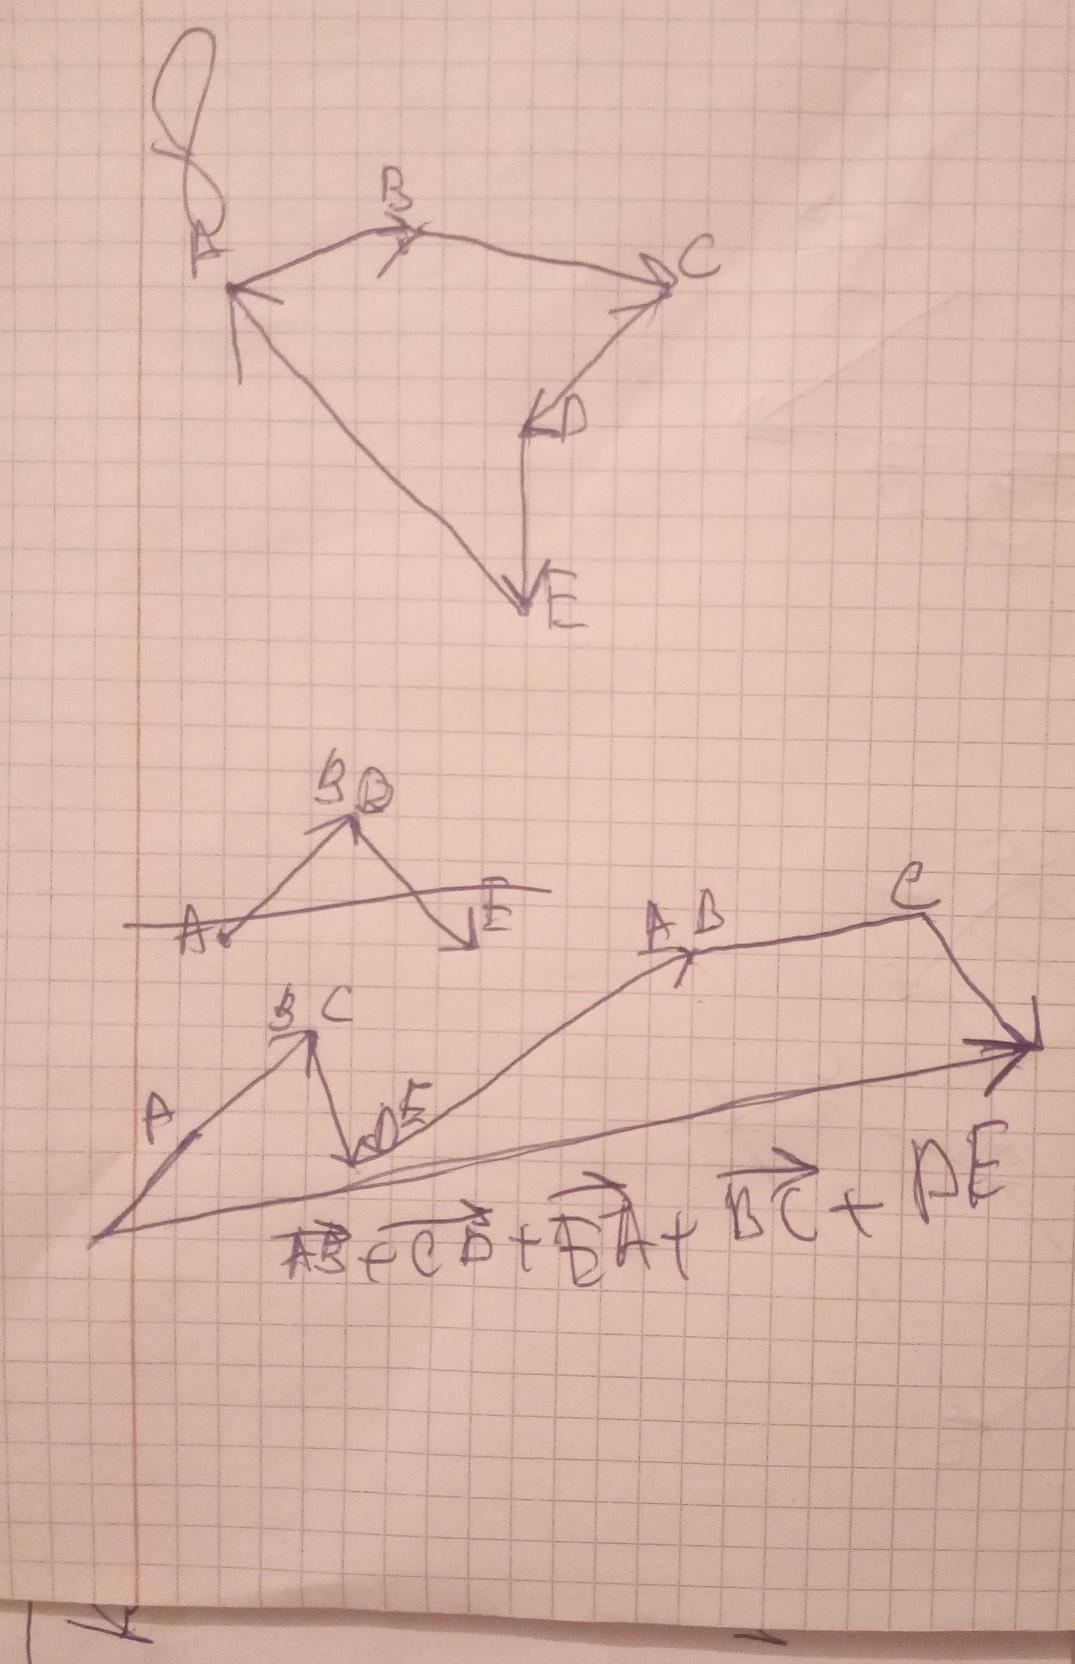 B
A
C
D
E
B D
A E
A B C
B C
A
D E
AB + CD + EA + BC + DE